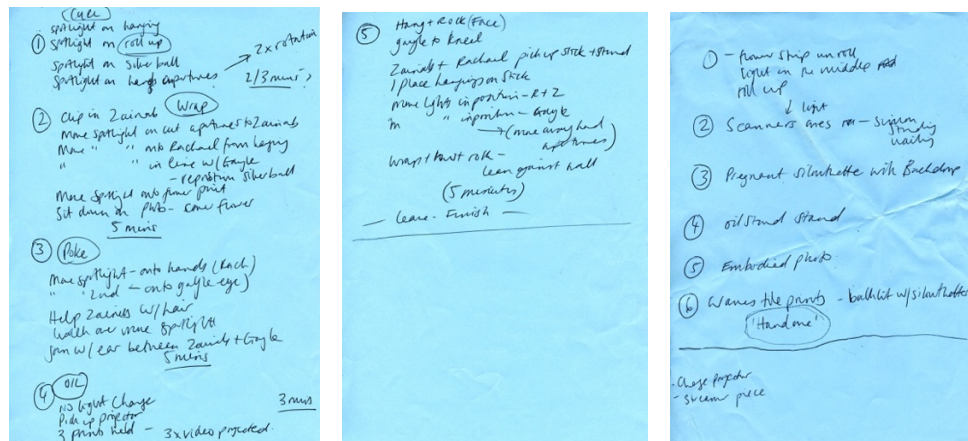 Cycle
spotlight on hanging
① spotlight on roll up
spotlight on silver ball
spotlight on apertures
2 x rotation
2/3 mins
② Clip in Zainab
Wrap
Move spotlight on cut apertures to Zainab
Move " " onto Rachael from hanging
" " in line w/ Gayle
- reposition silver ball
Move spotlight onto flower print
Sit down on photo - flower
5 mins
③ Poke
Move spotlight - onto hands (Rach)
" 2nd - onto gayle eye)
Help Zainab w/ hair
Walk over move spotlight
Join w/ ear between Zainab + Gayle
5 mins
④ OIL
No light change
Pick up projector
3 mins
3 prints held - 3 x video projected.
⑤ Hang + Rock (Face)
gayle to kneel
Zainab + Rachael pick up stick + stand
/ place hangings on stick
move lights in position - R + Z
" in position - Gayle
→ (move away hand
apertures)
wrap + knot roll -
lean against wall
(5 minutes)
- leave - Finish -
① - flower strip unroll
light in the middle
roll up
↓ light
② Scanners - Simon
standing
waiting
③ Pregnant silouhette with Backdrop
④ oil stand
⑤ Embodied photo
⑥ Waves tile prints - backlit w/ silouhette
'Hand one'
- Change projector
- piece